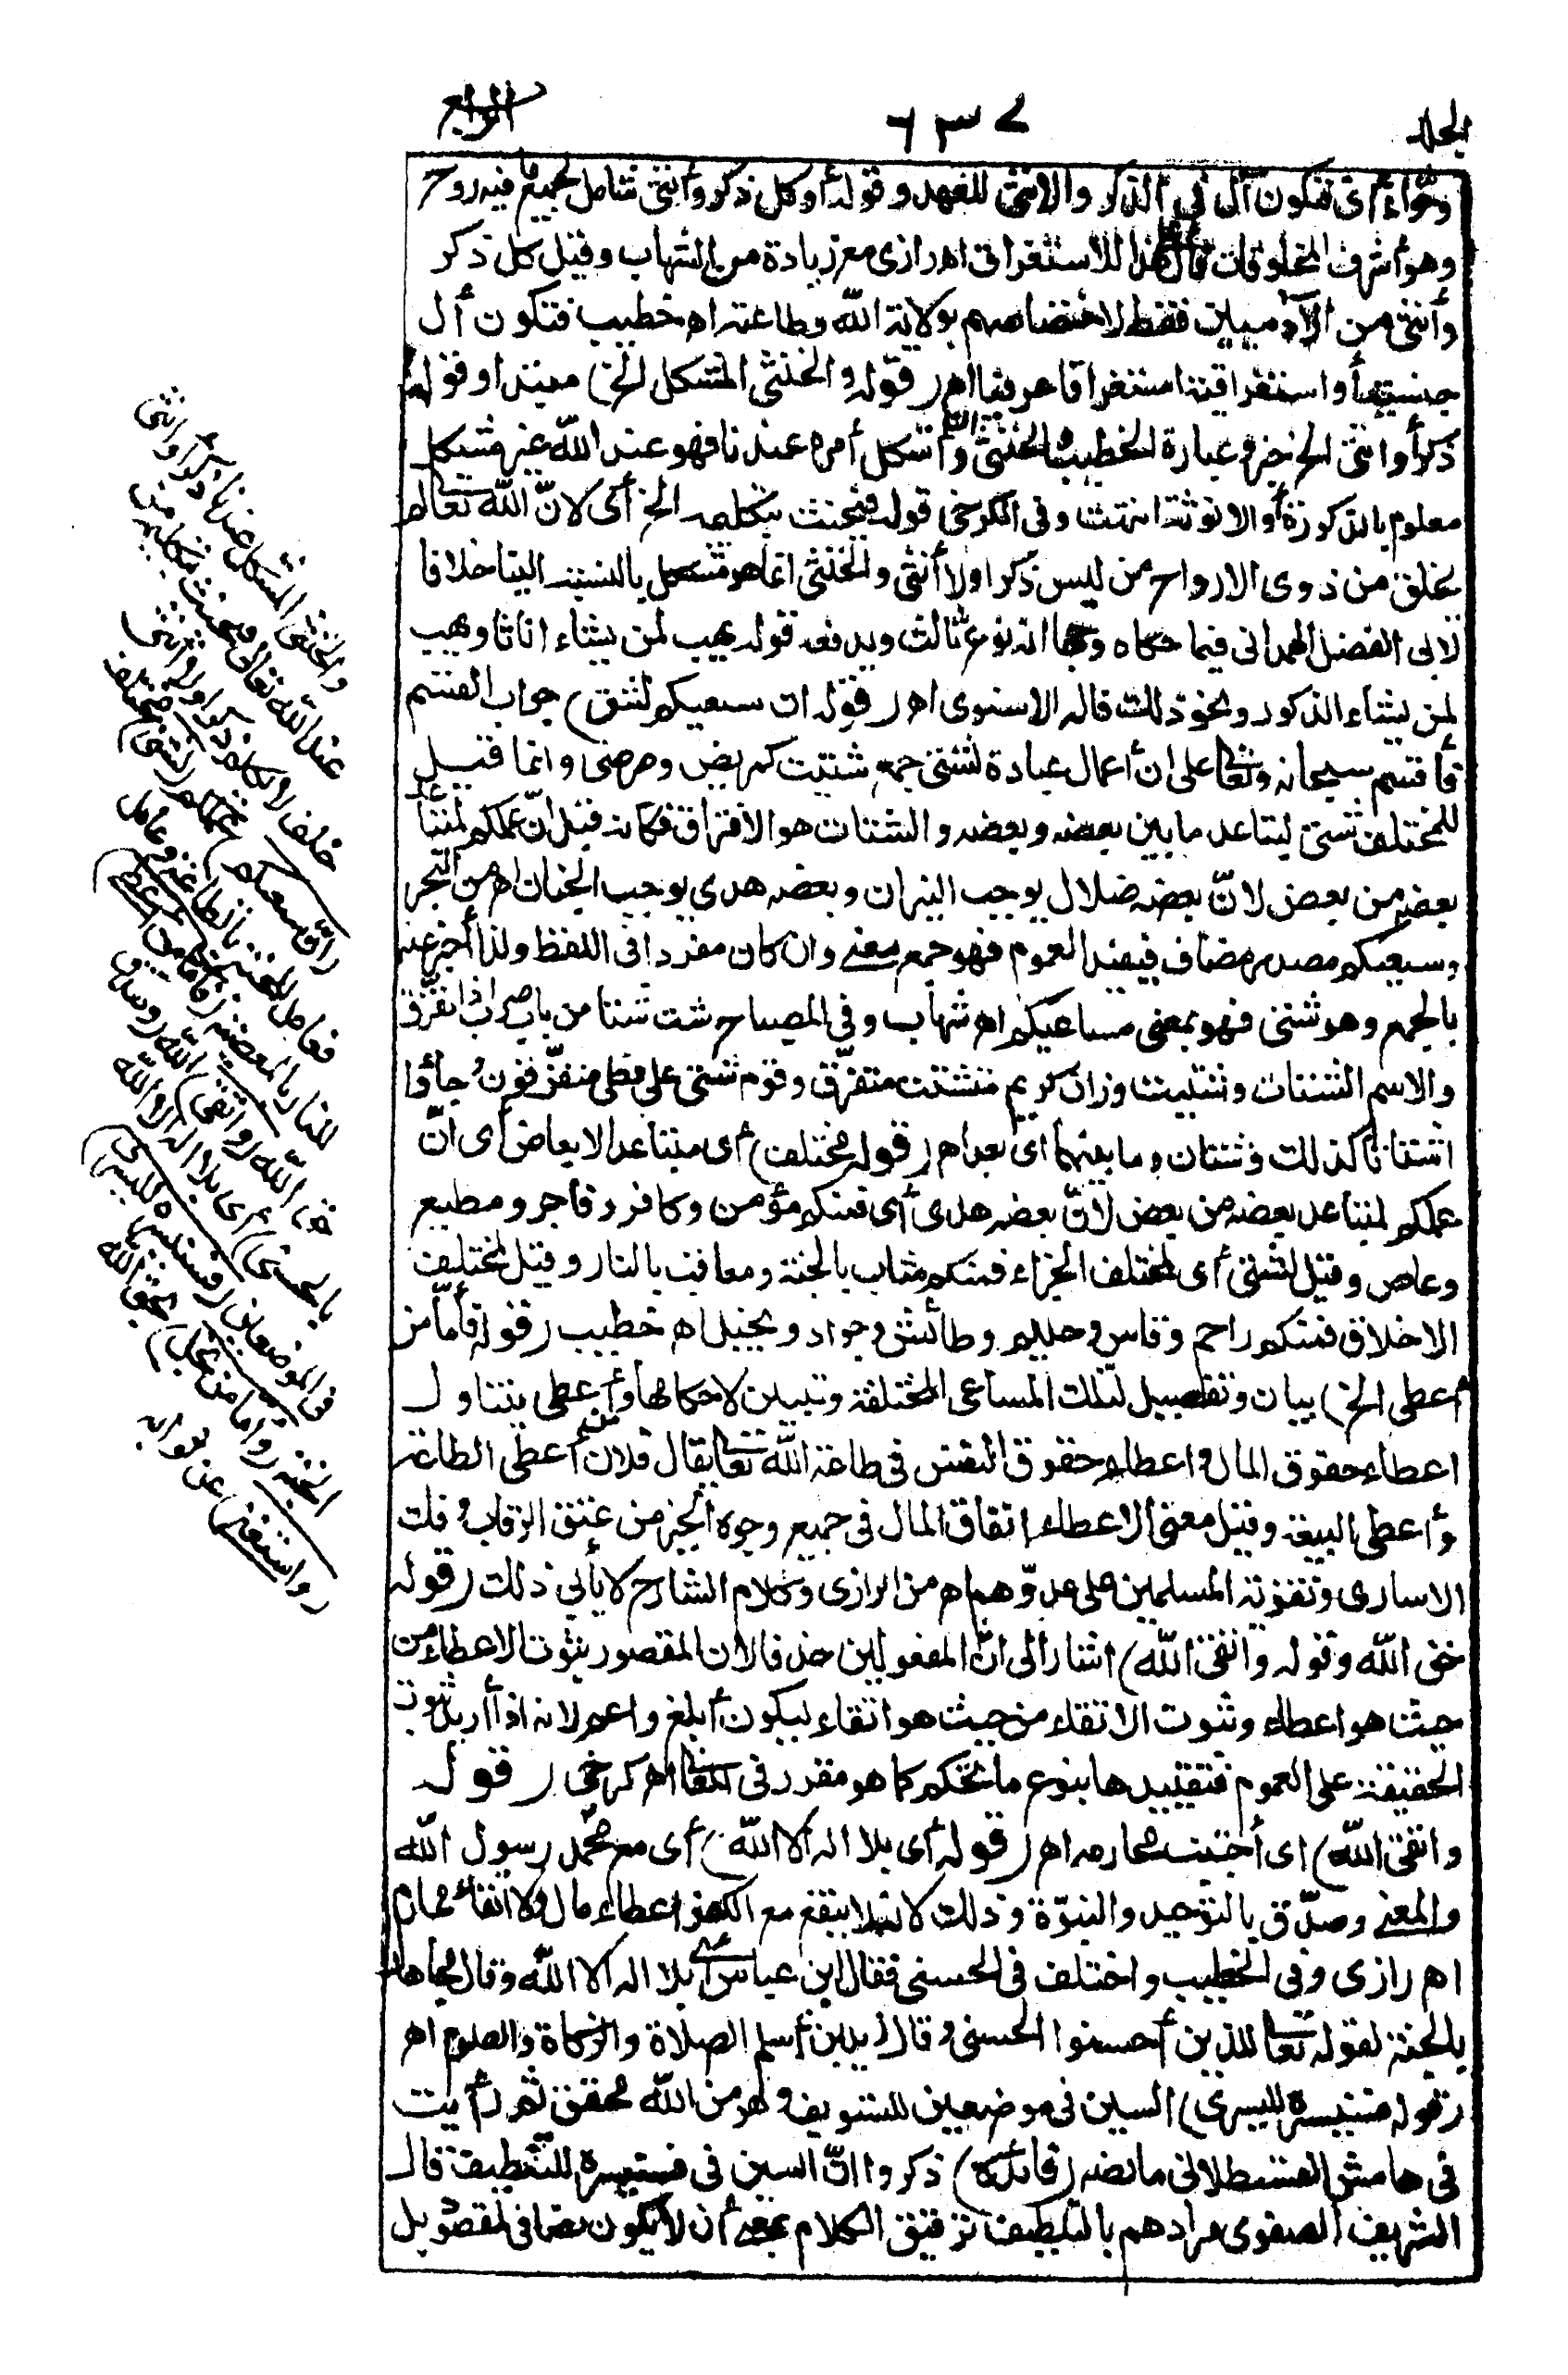 الجلد ٦٣٧ الرابع
وحواء أى فتكون أل فى الذكر والانثى للعهد وقوله أو كل ذكر وأنثى شامل لجميع ما فيه روح
وهو أشرف المخلوقات فأل للاستغراق اه رازى مع زيادة من الشهاب وقيل كل ذكر
وأنثى من الآدميين فقط لاختصاصهم بولاية الله وطاعته اه خطيب فتكون أل
جنسية أو استغراقية استغراقا عرفيا اه (قوله والخنثى المشكل الخ) مبتدا وقوله
ذكر أو انثى الخ خبر وعبارة الخطيب والخنثى وان أشكل أمره عندنا فهو عند الله غير مشكل
معلوم بالذكورة أو الانوثة انتهت وفى الكرخى قوله فيحنث بتكليمه الخ أى لانّ الله تعالى لم
يخلق من ذوى الارواح من ليس ذكرا ولا أنثى والخنثى انما هو مشكل بالنسبة الينا خلافا
لابى الفضل الهمدانى فيما حكاه وجها انه نوع ثالث ويدفعه قوله يهب لمن يشاء اناثا ويهب
لمن يشاء الذكور ونحو ذلك قاله الاسنوى اه (قوله ان سعيكم لشتى) جواب القسم
فأقسم سبحانه وتعالى على ان أعمال عباده لشتى جمع شتيت كمريض ومرضى وانما قيل
للمختلف شتى لتباعد ما بين بعضه وبعضه والشتات هو الافتراق فكانه قيل انّ عملكم لمتباعد
بعضه من بعض لانّ بعضه ضلال يوجب النيران وبعضه هدى يوجب الجنان اه من البحر
وسعيكم مصدر مضاف فيفيد العموم فهو جمع معنى وان كان مفردا فى اللفظ ولذا أخبر عنه
بالجمع وهو شتى فهو بمعنى مساعيكم اه شهاب وفى المصباح شت شتا من باب ضرب اذا تفرّق
والاسم الشتات وشتيت وزان كريم متشتت متفرّق وقوم شتى على فعلى متفرّقون وجاؤا
اشتاتا كذلك وشتان ما بينهما أى بعد اه (قوله مختلف) أى متباعد الابعاض أى انّ
عملكم لمتباعد بعضه من بعض لانّ بعضه هدى أى فمنكم مؤمن وكافر وفاجر ومطيع
وعاص وقيل لشتى أى لمختلف الجزاء فمنكم مثاب بالجنة ومعاقب بالنار وقيل لمختلف
الاخلاق فمنكم راحم وقاس وحليم وطائش وجواد وبخيل اه خطيب (قوله فأمّا من
أعطى الخ) بيان وتفصيل لتلك المساعى المختلفة وتبيين لاحكامها وأعطى يتناول
اعطاء حقوق المال واعطاء حقوق النفس فى طاعة الله تعالى يقال فلان أعطى الطاعة
وأعطى البيعة وقيل معنى الاعطاء انفاق المال فى جميع وجوه الخير من عتق الرقاب وفك
الاسارى وتقوية المسلمين على عدوّهم اه من الرازى وكلام الشارح لا يأبى ذلك (قوله
حق الله وقوله واتقى الله) اشار الى انّ المفعولين حذفا لان المقصود ثبوت الاعطاء من
حيث هو اعطاء وثبوت الاتقاء من حيث هو اتقاء ليكون أبلغ واعم لانه اذا أريد ثبوت
الحقيقة على العموم فتقييدها بنوع ما تحكم كما هو مقرر فى اه كرخى (قوله
واتقى الله) اى أجتنب محارمه اه (قوله أى بلا اله الا الله) أى مع محمد رسول الله
والمعنى وصدّق بالتوحيد والنبوّة وذلك لانه لا ينفع مع الكفر اعطاء مال ولا اتقاء محارم
اه رازى وفى الخطيب واختلف فى الحسنى فقال ابن عباس أى بلا اله الا الله وقال مجاهد
بالجنة لقوله تعالى للذين أحسنوا الحسنى وقال زيد بن أسلم الصلاة والزكاة والصوم اه
(قوله فسنيسره لليسرى) السين فى موضعين للتسويف وهو من الله محقق ثم رأيت
فى هامش القسطلانى ما نصه (فائدة) ذكروا انّ السين فى فسنيسره للتلطيف قال
الشريف الصفوى مرادهم بالتلطيف ترقيق الكلام بمعنى أن لا يكون نصا فى المقصود بل
والخنثى المشكل عندنا ذكر أو انثى
عند الله تعالى فيحنث بتكليمه من
حلف لا يكلم ذكرا ولا أنثى
(انّ سعيكم) عملكم (لشتى) مختلف
فعامل للجنة بالطاعة وعامل
للنار بالمعصية (فامّا من أعطى)
حق الله (واتقى) الله (وصدّق
بالحسنى) أى بلا اله الا الله
فى الموضعين (فسنيسره لليسرى)
الجنة (وأما من بخل) بحق الله
(واستغنى) عن ثوابه